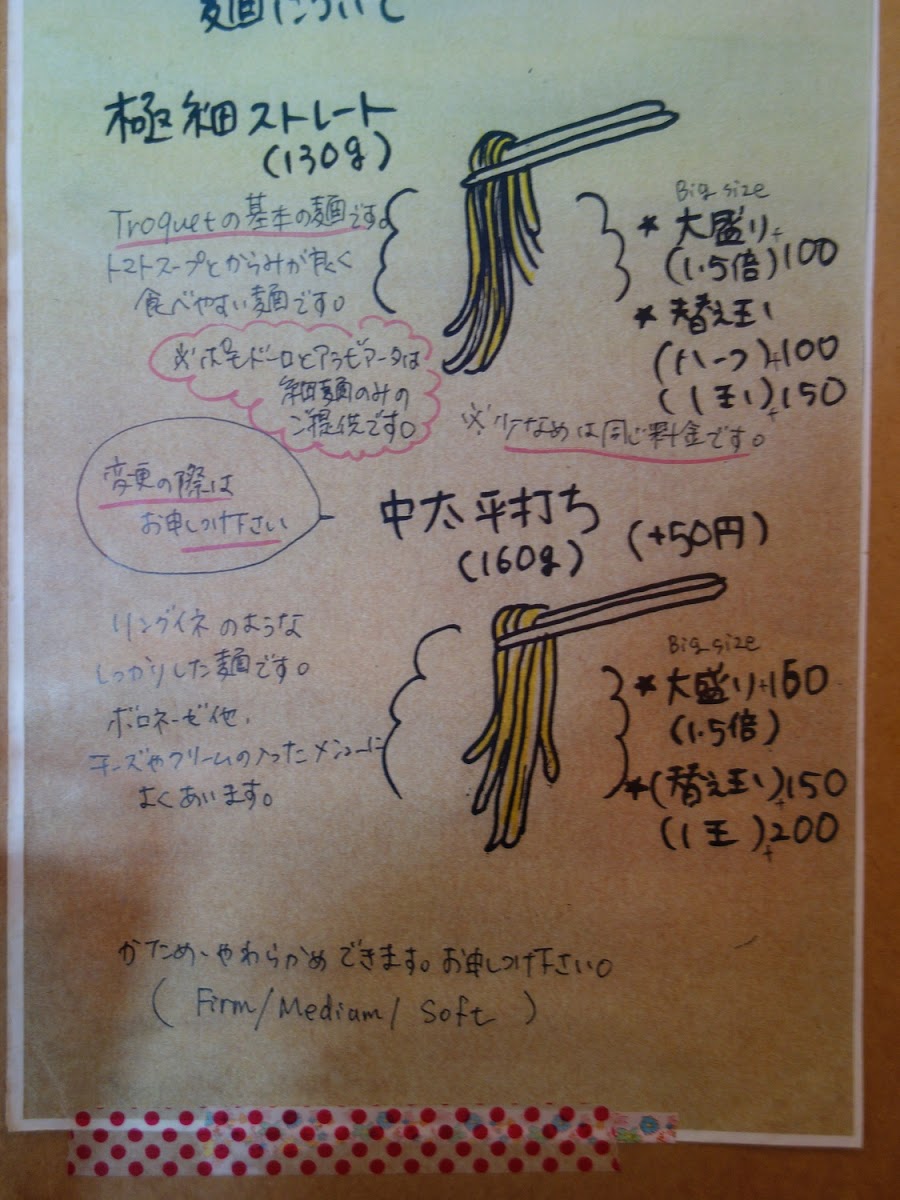 麺について
極細ストレート
(130g)
Troquetの基本の麺です。
トマトスープとからみが良く
食べやすい麺です。
※ポモドーロとアラビアータは
細麺のみの
ご提供です。
Big size
★大盛り+
(1.5倍)100
★替え玉い
(ハーフ)+100
(1玉い)+150
※少なめは同じ料金です。
変更の際は
お申しつけ下さい
中太平打ち
(160g) (+50円)
リングイネのような
しっかりした麺です。
ボロネーゼ他、
チーズやクリームの入ったメニューに
よくあいます。
Big size
★大盛り+150
(1.5倍)
★(替え玉い)+150
(1玉)+200
かため、やわらかめできます。お申しつけ下さい。
(Firm/Medium/Soft)